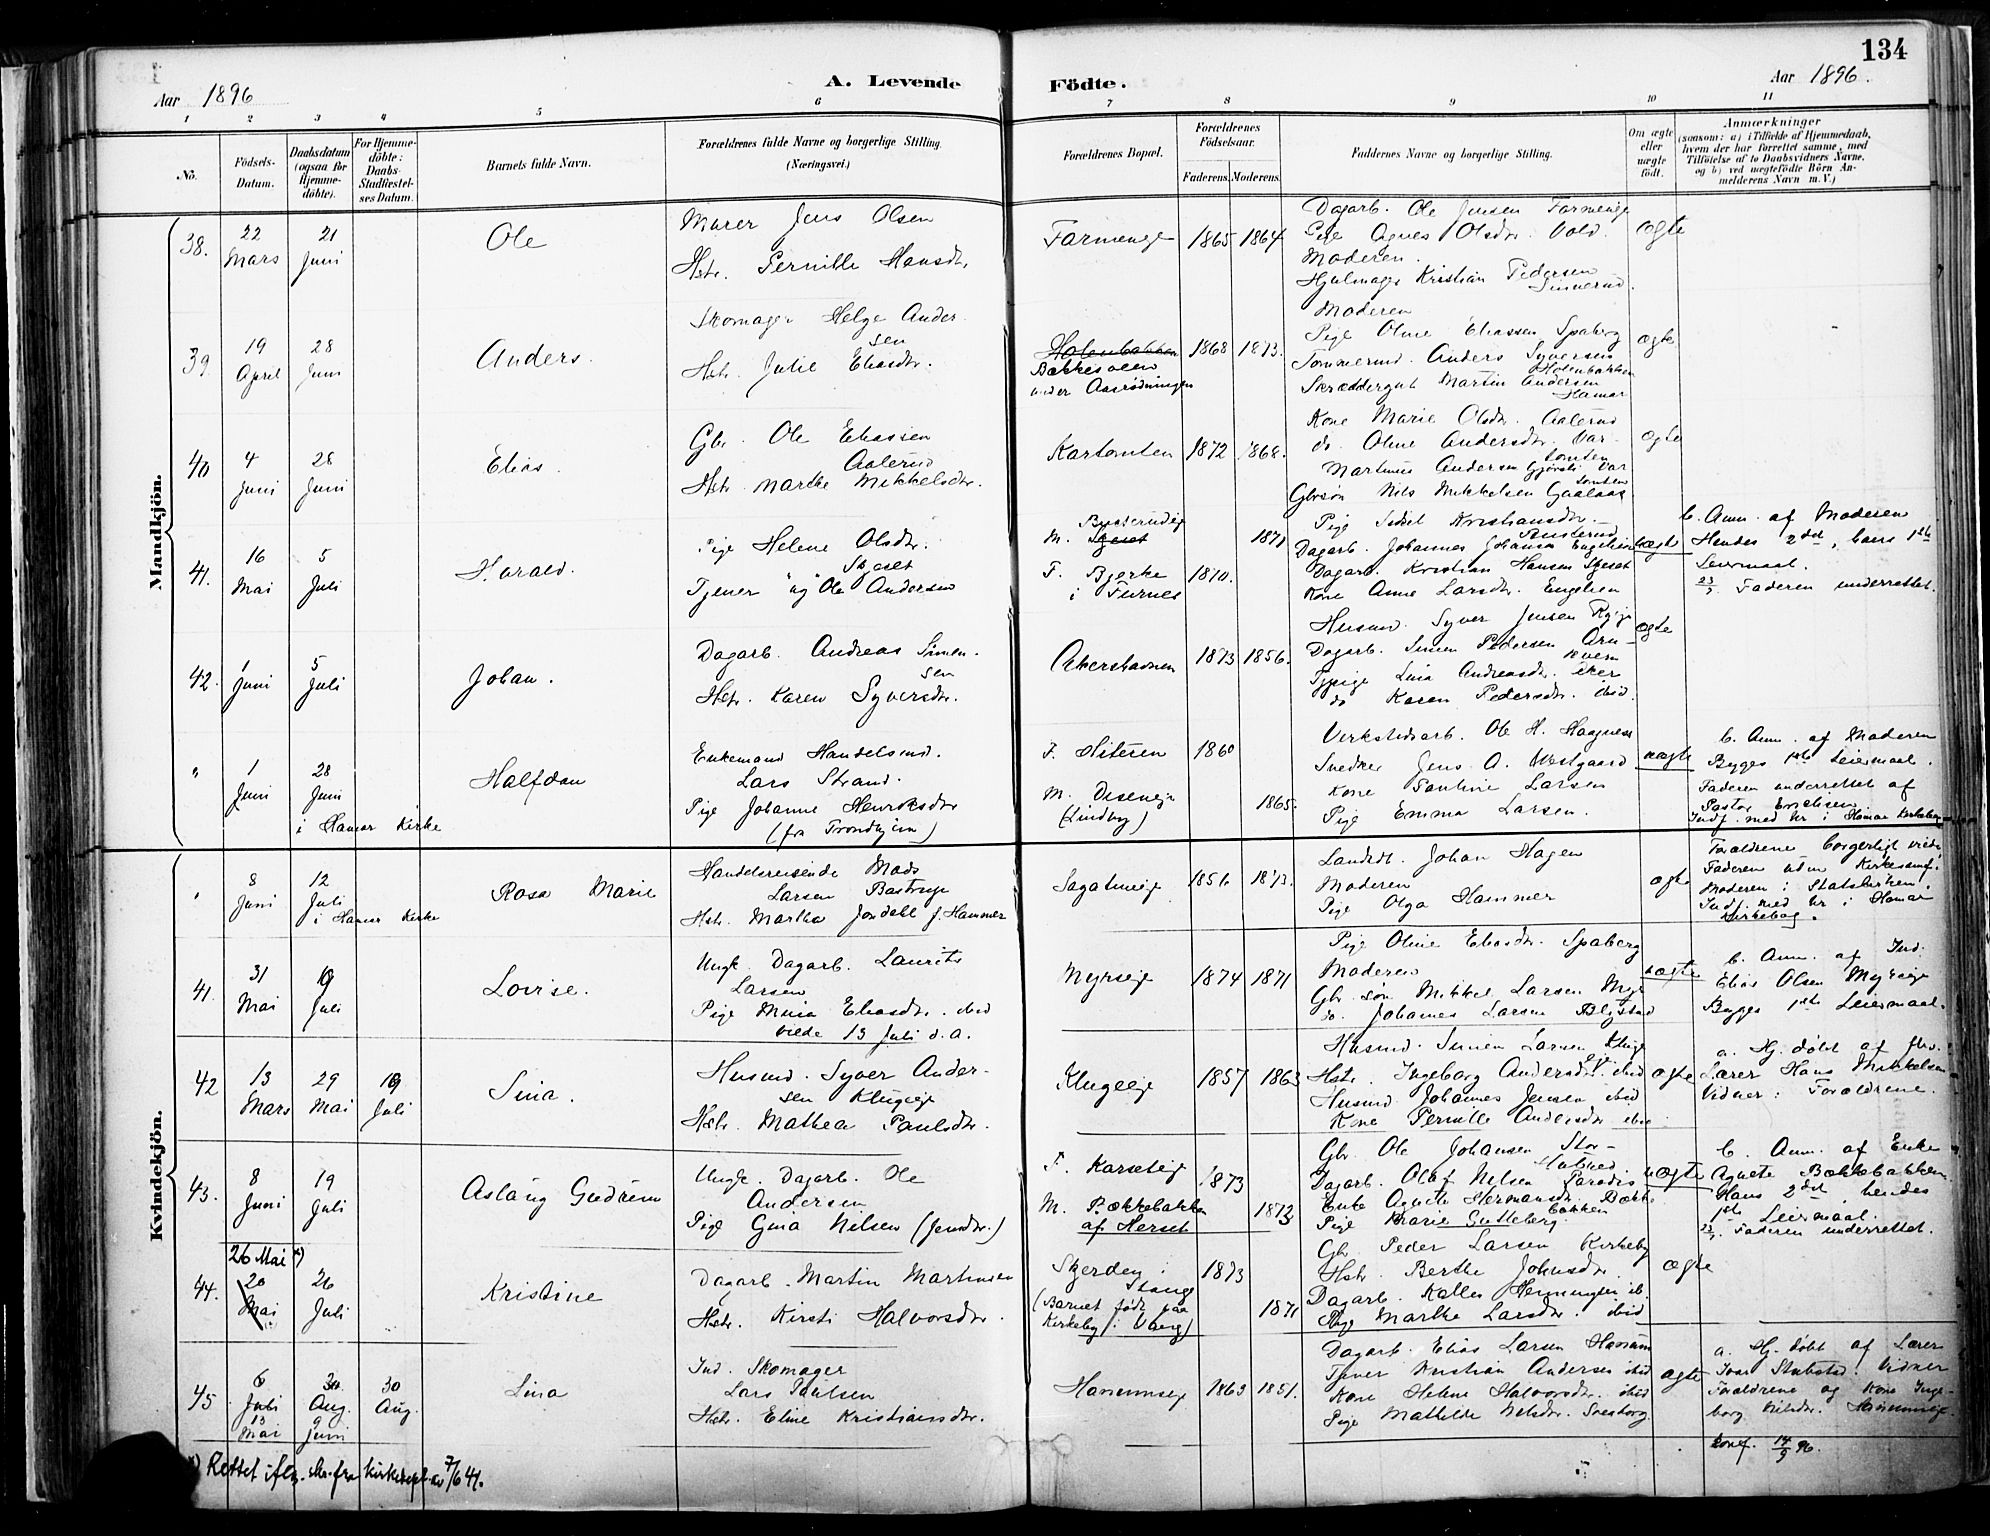 134
Aar 1896
A. Levende
Födte.
Aar 1896.
1 2 3 4 5 6 7 8 9 10 11
No.
Födsels-Datum.
Daabsdatum (ogsaa för Hjemme-döbte).
For Hjemme-döbte: Daabs-Stadfæstel-ses Datum.
Barnets fulde Navn.
Forældrenes fulde Navne og borgerlige Stilling. (Næringsvei.)
Forældrenes Bopæl.
Forældrenes Födselsaar.
Faderens. Moderens.
Faddernes Navne og borgerlige Stilling.
Om ægte eller uægte födt.
Anmærkninger
(saasom: a) i Tilfælde af Hjemmedaab, hvem der har forrettet samme, med Tilföielse af to Daabsvidners Navne, og b) ved uægtefödte Börn An-melderens Navn m. V.)
Mandkjön.
38.
22 Mars
21 Juni
Ole
Murer Jens Olsen
Hstr. Pernille Hansdtr.
Farmenge
1865 1864
Dagarb. Ole Jensen Farmenge
Pige Agnes Olsdtr. Vold
Moderen.
Hjulmager Kristian Pedersen
ægte
39.
19 April
28 Juni
Anders.
Skomager Helge Ander-
sen
Hstr. Julie Eliasdtr.
Bakkesveen
under Aasrødningen
1868 1873.
Moderen
Pige Oline Eliassen Spaberg
Tømmermd. Anders Syversen
Holenbakken
Skræddergut Martin Andersen
Hamar
ægte
40
4 Juni
28 Juni
Elias.
Gbr. Ole Eliassen
Aalerud
Hstr. Marthe Mikkelsdtr.
Kartomten
1872 1868.
Kone Marie Olsdtr. Aalerud
do. Oline Andersdtr. Var-
tomten
Martinus Andersen
Gbrsøn Nils Mikkelsen Gaalaas
ægte
41.
16 Mai
5 Juli
Harald.
Pige Helene Olsdtr.
Skjeset
Tjener og Ole Andersen
M.
F. Bjerke
i Furnes
1871
1870.
Dagarb. Johannes Johansen Engelien
Dagarb. Kristian Hansen Skjeset
Kone Anne Larsdtr. Engelien
uægte
b. Anm. af Moderen
Hendes 2det, hans 1ste
Leiermaal.
Faderen underrettet.
42.
1 Juni
5 Juli
Johan.
Dagarb. Andreas Simen-
sen
Hstr. Karen Syversdtr.
Akershavnen
1873 1856.
Husmd. Syver Jensen
Dagarb. Simen Pedersen Arn-
kvern
Tjpige Lina Andreasdtr. Aker
do Karen Pedersdtr. ibid.
ægte
"
1 Juni
28 Juni
i Hamar Kirke
Halfdan
Enkemand Handelsmd.
Lars Strand.
Pige Johanne Henriksdtr
(fra Trondhjem)
F.
1860
M. Diseneie
(Lindby)
1865.
Verkstedsarb. Ole H. Haagnes
Snedker Jens A. Westgaard
Kone Pauline Larsen
Pige Emma Larsen.
uægte
b. Anm. af Moderen
Begges 1ste Leiermaal.
Faderen underrettet af
Pastor
Indf. med Nr i Hamar Kirkebog
Kvindekjön.
"
8 Juni
12 Juli
i Hamar Kirke
Rosa Marie
Handelsreisende Mads
Larsen Bastrup
Hstr. Martha Jordahl f. Hammer
Sagatuneie
1856 1873.
Landsdt. Johan Hagen
Moderen
Pige Olga Hammer
ægte
Forældrene borgerligt viede
Faderen uden Kirkesamf.
Moderen i Statskirken.
Indf. med Nr i Hamar
Kirkebog.
41.
31 Mai
19 Juli
Lovise.
Ungk. Dagarb. Laurits
Larsen
Pige Mina Eliasdtr. ibid
viede 13 Juli d.a.
Myrseie
1874 1871
Pige Oline Eliasdtr. Spaberg
Moderen
Gbr. søn Mikkel Larsen Myr
do. Johannes Larsen
uægte
b. Anm. af Ind.
Elias Olsen Myrseie
Begges 1ste Leiermaal.
42
13 Mars
29 Mai
19 Juli
Sina.
Husmd. Syver Ander-
sen Klugeie
Hstr. Mathea Paulsdtr.
Klugeeie
1857 1863
Husmd. Simen Larsen
Hstr. Ingeborg Andersdtr. ibid
Husmd. Johannes Jensen ibid
Kone Pernille Andersdtr ibid
ægte
a. Hj. døbt af fhv.
Lærer Hans Mikkelsen
Vidner: Forældrene.
43.
8 Juni
19 Juli
Aslaug Gudrun
Ungk. Dagarb. Ole
Andersen
Pige Gina Nilsen (Jensdtr.)
F. Karseteie
1873
M. Bækkebakken
af Herset
1873
Gbr. Ole Johansen Stor-
Dagarb. Olaf Nilsen Paradis
Enke Agnete Hermansdtr. Bække-
bakken
Pige Marie Gutteberg.
uægte
b. Anm. af Enke
Agnete Bækkebakken
Hans 2det, hendes
1ste Leiermaal.
Faderen underrettet.
44.
26 Mai *)
20 Mai
26 Juli
Kristine
Dagarb. Martin Martinsen
Hstr. Kirsti Halvorsdtr.
Skjerden i
Stange
(Barnet født paa
Kirkeby i Vang)
1873
1871
Gbr. Peder Larsen Kirkeby
Hstr. Berthe Johnsdtr.
Dagarb. Kalle Henningsen ib.
Pige Marthe Larsdtr. ibid
ægte
45
6 Juli
30 Aug.
30 Aug.
Lina
Ind. Skomager
Lars Paulsen
Hstr. Eline Kristiansdtr.
Hanumseie
1863 1851.
Dagarb. Elias Larsen Hanum
Tjener Kristian Andersen ibid
Kone Helene Halvorsdtr. ibid
Pige Mathilde Nilsdtr.
ægte
a. Hj. døbt af Lærer
Ivar Stubstad. Vidner
Forældrene og Kone Inge-
borg Nilsdtr. Hanumseie.
13 Mai
9 Juni
Konf. 14/9 96.
*) Rettet ifl. skr. fra kirkedept av 7/6 41.